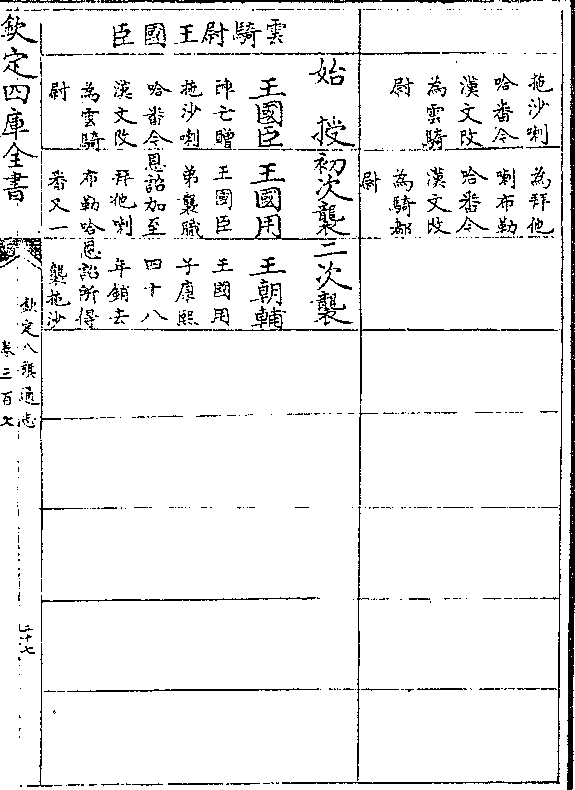 拖沙喇
哈番今
漢文改
為雲騎
尉
為拜他
喇布勒
哈番今
漢文改
為騎都
尉
雲騎尉王國臣
始授
王國臣
陣亡贈
拖沙喇
哈番今
漢文改
為雲騎
尉
初次襲
王國用
王國臣
弟襲職
恩詔加至
拜他喇
布勒哈
番又一
二次襲
王朝輔
王國用
子康熙
四十八
年銷去
恩詔所得
襲拖沙
欽定四庫全書
欽定八旗通志
卷三百七
二十七